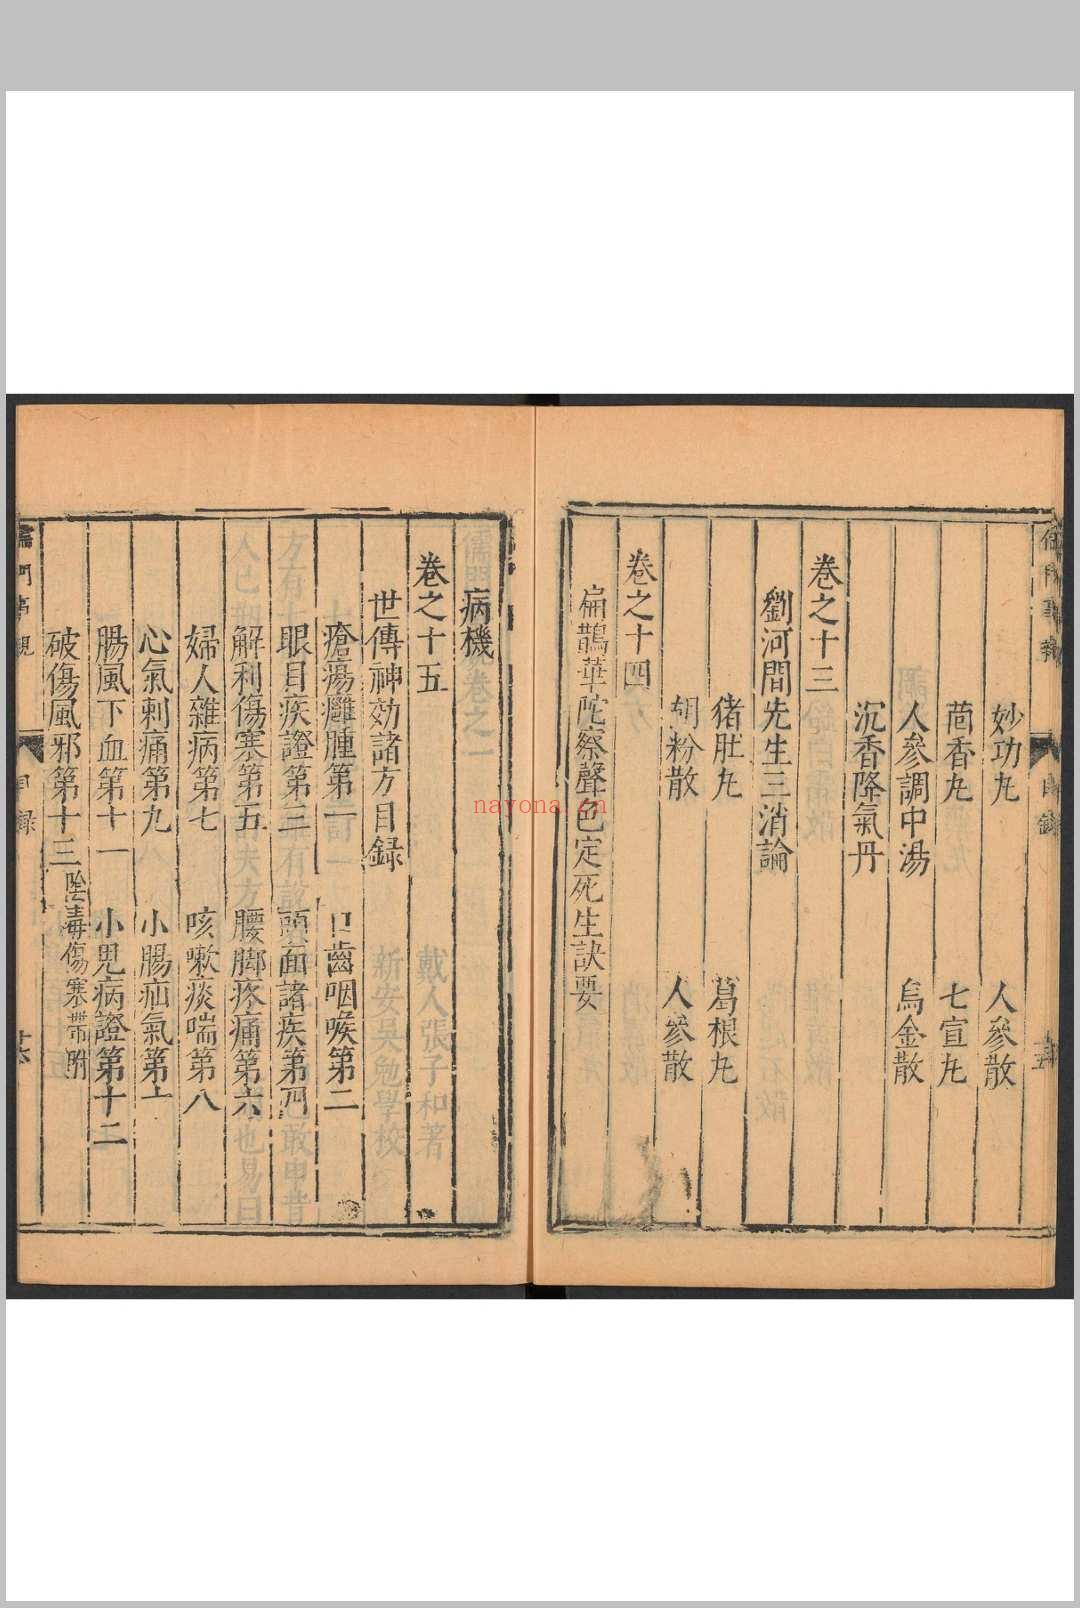 儒門事親
目録
妙功九
人參散
茴香九
七宣九
人參調中湯
烏金散
沉香降氣丹
卷之十三
劉河間先生三消論
猪肚九
葛根九
胡粉散
人參散
卷之十四
扁鵲華陀察聲色定死生訣要
病機
卷之十五
世傳神効諸方目録
瘡瘍癰腫第一
口齒咽喉第二
眼目疾證第三
頭面諸疾第四
解利傷寒第五
腰脚疼痛第六
婦人雜病第七
咳嗽痰喘第八
心氣刺痛第九
小腸疝氣第十
腸風下血第十一
小兒病證第十二
破傷風邪第十三
陰毒傷寒帶附
儒門事親
目録
nayona.cn